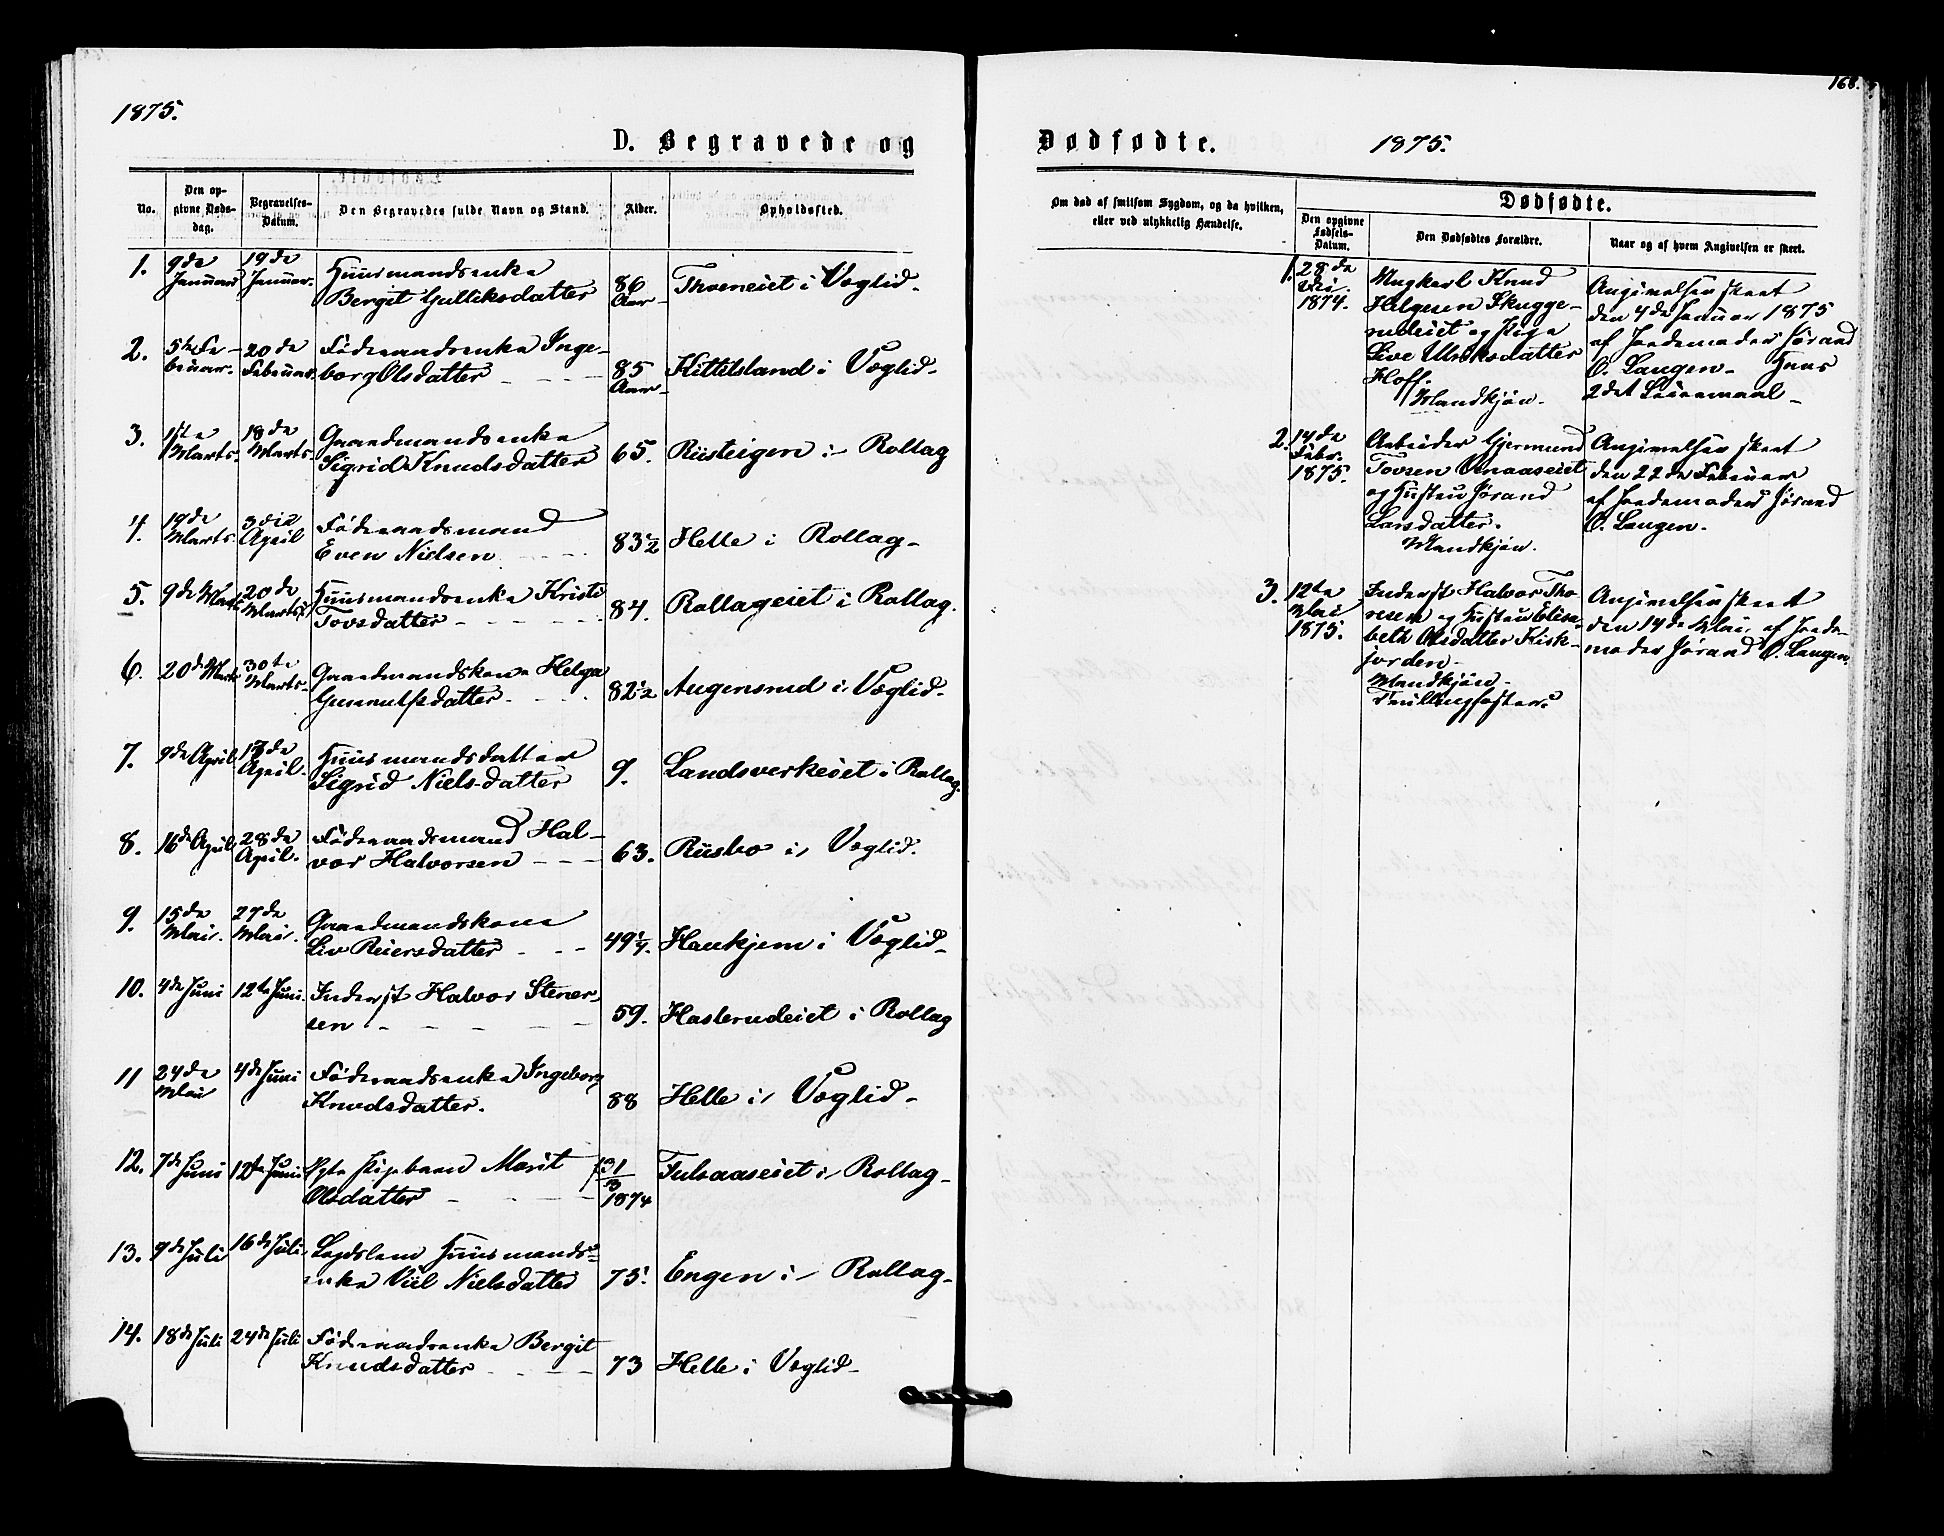 1875.
D. Begravede og
No.
Den op-
givne Døds-
dag.
Begravelses-
Datum.
Den Begravedes fulde Navn og Stand.
Alder.
Opholdssted.
1. 9de Januar 19de Januar. Huusmandsenke
Bergit Gulliksdatter 86 Aar Thoeneiet i Væglid.
2. 5te Februar. 20de Februar. Føderaadsenke Inge-
borg Olsdatter 85 Aar Kittilsland i Væglid.
3. 1ste Marts. 18de Marts. Gaardmandsenke
Sigrid Knudsdatter 65. Riisteigen i Rollag
4. 19de Marts. 3die April Føderaadsmand
Even Nielsen 83½ Helle i Rollag
5. 9de Marts 20de Marts Huusmandsenke Kristi
Tovsdatter 84. Rollageiet i Rollag.
6. 20de Marts 30te Marts. Gaardmandskone Helga
Gunnulfsdatter 82½ Augensrud i Væglid.
7. 9de April 17de April. Huusmandsdatter
Sigrid Nielsdatter 9. Landsverkeiet i Rollag.
8. 16de April 28de April. Føderaadsmand Hal-
vor Halvorsen 63. Riisbo i Væglid.
9. 15de Mai. 27de Mai. Gaardmandskone
Liv Reiersdatter 49¼. Haukjem i Væglid
10. 4de Juni 12te Juni. Inderst Halvor Stener-
sen 59. Hasterudeiet i Rollag
11 24de Mai 4de Juni Føderaadsenke Ingeborg
Knudsdatter. 88 Helle i Væglid
12. 7de Juni 12te Juni Pigebarn Marit
Olsdatter 31/3 1874 Fulsaaseiet i Rollag
13. 9de Juli 16de Juli. Lægdslem Huusmands-
enke Viil Nielsdatter 75. Engen i Rollag
14. 18de Juli 24de Juli Føderaadsenke Bergit
Knudsdatter 73 Helle i Væglid
168.
Dødfødte. 1875.
Om død af smitsom Sygdom, og da hvilken,
eller ved ulykkelig Hændelse.
Dødfødte.
Den opgivne
Fødsels-
Datum.
Den Dødfødtes Forældre.
Naar og af hvem Angivelsen er skeet.
1. 28de 1874.
Ungkarl Knud
Helgesen Skugge-
rudeiet og Pige
Live Ulriksdatter
Hoff.
Mandkjøn.
Angivelsen skeet
den 4de Januar 1875
af Jordemoder Jørand
O. Langen. Hans
2det Leiermaal
2. 14de Febr. 1875.
Arbeider Gjermund
Tovsen Vinaaseiet
og Hustru Jørand
Larsdatter.
Mandkjøn.
Angivelsen skeet
den 22de Februar
af Jordemoder Jørand
O. Langen.
3. 12te Mai 1875.
Inderst Halvor Tho-
resen og Hustru Elisa-
beth Olsdatter Kirk-
jorden
Mandkjøn
Tvillingfoster.
Angivelsen skeet
den 14de Mai af Jorde-
moder Jørand O. Langen